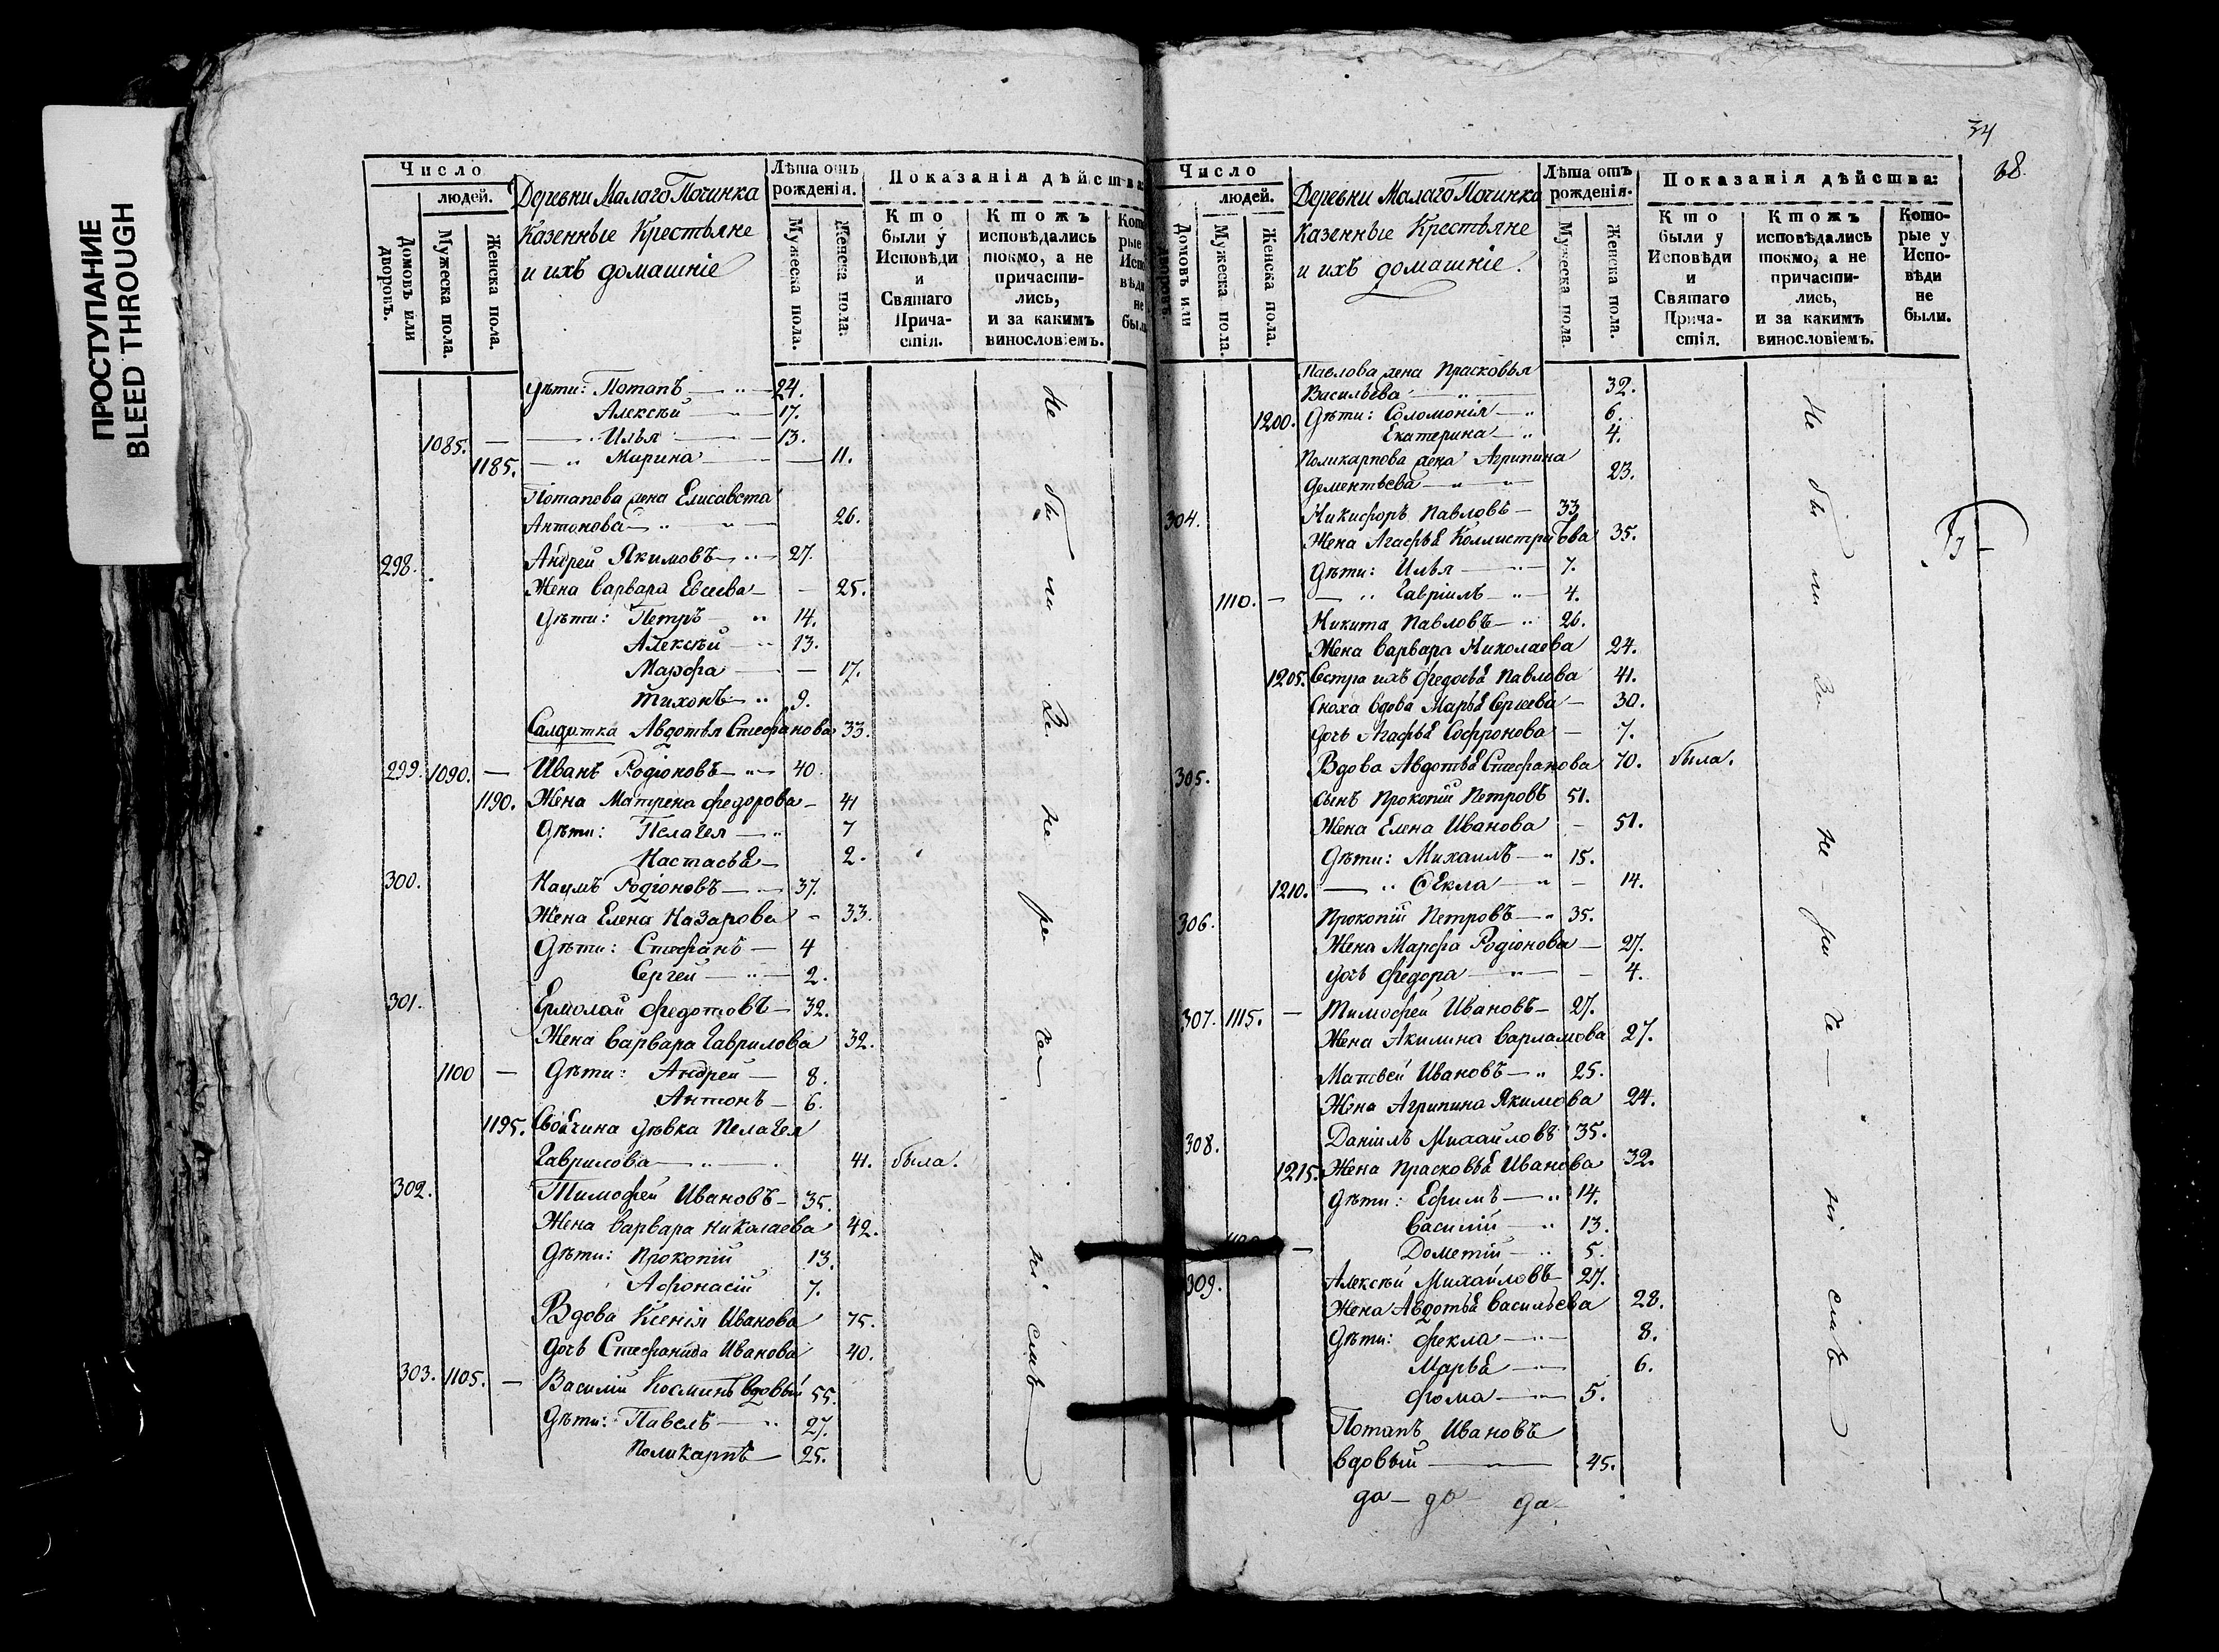 ПРОСТУПАНИЕ
BLEED THROUGH
Число
людей.
Домовъ или дворовъ.
Мужеска пола.
Женска пола.
Деревни Малаго Починка
Казенные Крестьяне
и ихъ домашніе
Лѣта отъ рожденія.
Мужеска пола.
Женска пола.
Показанія дѣйства:
Кто были у Исповѣди и Святаго Причастія.
Ктожъ исповѣдались токмо, а не причастились, и за какимъ винословіемъ.
Дѣти: Потапъ 24.
Алексѣй 17.
1085. — Илья 13.
1185. Марина — 11.
Потапова жена Елисавета
Антонова 26.
298. Андрей Якимовъ 27.
Жена Варвара Евсеева — 25.
Дѣти: Петръ 14.
Алексѣй 13.
Марфа — 17.
Тихонъ 9.
Салдатка Авдотья Стефанова 33.
299. 1090. — Иванъ Родіоновъ 40.
1190. Жена Матрена Федорова 41
Дѣти: Пелагея 7
Настасья 2.
300. Наумъ Родіоновъ 37.
Жена Елена Назарова — 33.
Дѣти: Стефанъ 4
Сергей 2.
301. Ермолай Федотовъ 32.
Жена Варвара Гаврилова 32.
1100 — Дѣти: Андрей 8.
Антонъ 6.
1195. Своячина дѣвка Пелагея
Гаврилова 41. была.
302. Тимофей Ивановъ 35.
Жена Варвара Николаева 42.
Дѣти: Прокопій 13.
Афонасій 7.
Вдова Ксенія Иванова 75.
дочь Стефанида Иванова 40.
303. 1105. — Василій Косминъ вдовый 55.
Дѣти: Павелъ 27.
Поликарпъ 25.
34
38.
Число
людей.
Домовъ или дворовъ.
Мужеска пола.
Женска пола.
Деревни Малаго Починка
Казенные Крестьяне
и ихъ домашніе.
Лѣта отъ рожденія.
Мужеска пола.
Женска пола.
Показанія дѣйства:
Кто были у Исповѣди и Святаго Причастія.
Ктожъ исповѣдались токмо, а не причастились, и за какимъ винословіемъ.
Которые у Исповѣди не были.
Павлова жена Прасковья
Васильева 32.
1200. Дѣти: Соломонія 6.
Екатерина 4.
Поликарпова жена Агрипина
Дементьева 23.
304. Никифоръ Павловъ 33
Жена Агафья Коллистратова 35.
Дѣти: Илья 7.
1110. — Гавріилъ 4.
Никита Павловъ 26.
Жена Варвара Николаева 24.
1205. Сестра ихъ Федосья Павлова 41.
Сноха вдова Марья Сергеева 30.
дочь Агафья Софронова 7.
305. Вдова Авдотья Стефанова 70. была.
Сынъ Прокопій Петровъ 51.
Жена Елена Иванова — 51.
Дѣти: Михаилъ 15.
1210. Ѳекла — 14.
306. Прокопій Петровъ 35.
Жена Марфа Родіонова 27.
дочь Федора — 4.
307. 1115. — Тимофей Ивановъ 27.
Жена Акилина Варламова 27.
Матвей Ивановъ 25.
Жена Агрипина Якимова 24.
308. Даніилъ Михайловъ 35.
1215. Жена Прасковья Иванова 32.
Дѣти: Ефимъ 14.
Василій 13.
Дометій 5.
309. Алексѣй Михайловъ 27.
Жена Авдотья Васильева 28.
Дѣти: Фекла 8.
Марья 6.
Фома 5.
Потапъ Ивановъ
вдовый 45.
да — да да